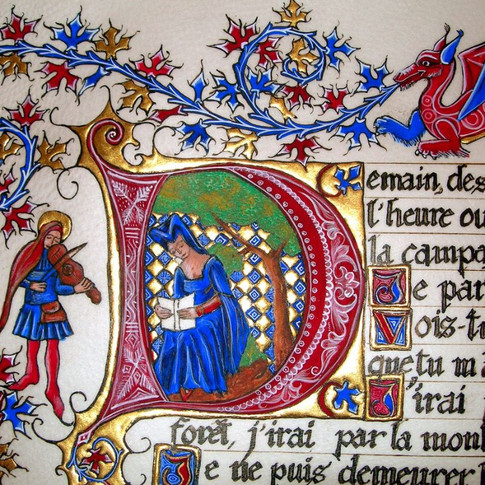 Demain, des
l'heure ou
la campa
Je par
Vois-tu
que tu m'a
J'irai
forêt, j'irai par la mont
Je ne puis demeurer